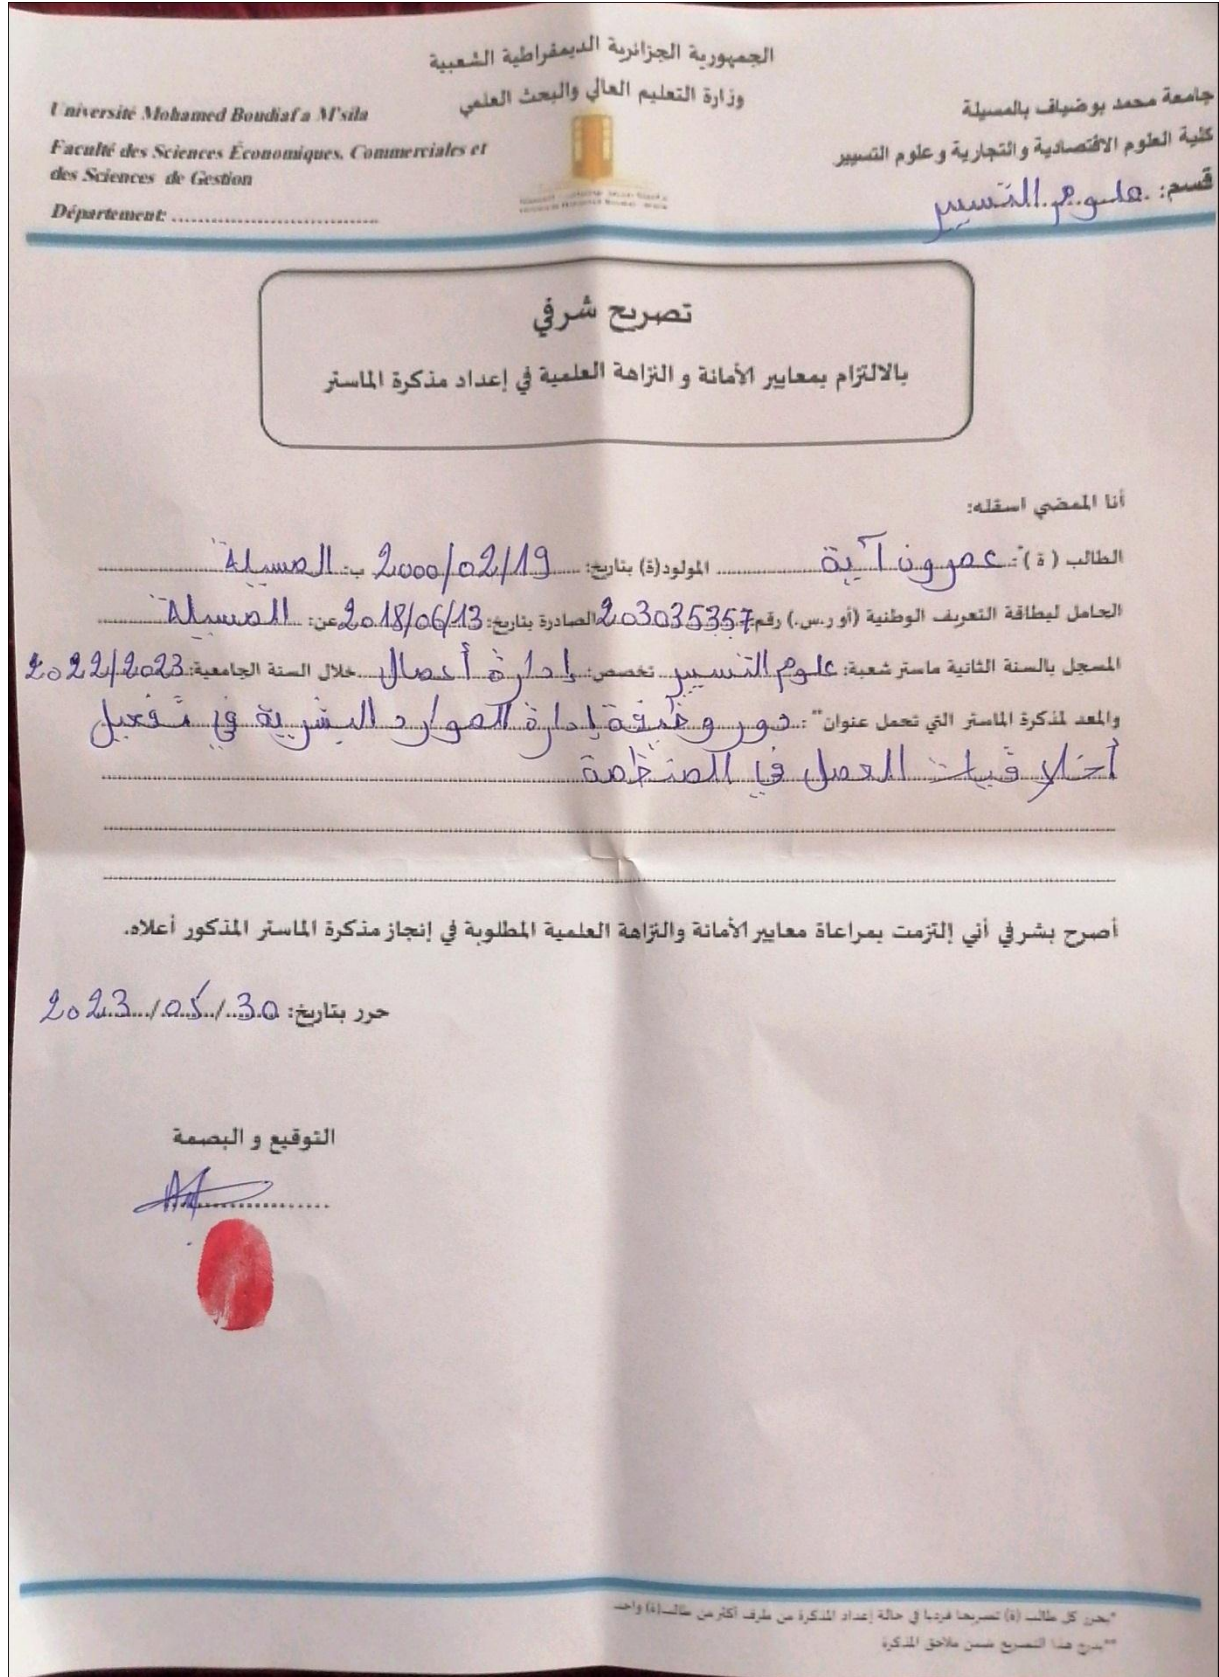 الجمهورية الجزائرية الديمقراطية الشعبية
وزارة التعليم العالي والبحث العلمي
Université Mohamed Boudiaf a M'sila
Faculté des Sciences Économiques, Commerciales et
des Sciences de Gestion
Département: ................................
جامعة محمد بوضياف بالمسيلة
كلية العلوم الاقتصادية والتجارية وعلوم التسيير
قسم: علوم التسيير
تصريح شرفي
بالالتزام بمعايير الأمانة و النزاهة العلمية في إعداد مذكرة الماستر
أنا الممضي اسفله:
الطالب ( ة )*: عمرون آية المولود(ة) بتاريخ: 2000/02/19 ب: المسيلة
الحامل لبطاقة التعريف الوطنية (أو ر.س.) رقم: 203035357 الصادرة بتاريخ: 2018/06/13 عن: المسيلة
المسجل بالسنة الثانية ماستر شعبة: علوم التسيير تخصص: إدارة أعمال خلال السنة الجامعية: 2022/2023
والمعد لمذكرة الماستر التي تحمل عنوان**: دور وظيفة إدارة الموارد البشرية في تفعيل
أخلاقيات العمل في المنظمة
أصرح بشرفي أني إلتزمت بمراعاة معايير الأمانة والنزاهة العلمية المطلوبة في إنجاز مذكرة الماستر المذكور أعلاه.
حرر بتاريخ: 30/05/2023
التوقيع و البصمة
*يحرر كل طالب (ة) تصريحا فرديا في حالة إعداد المذكرة من طرف أكثر من طالب(ة) واحد
**يدرج هذا التصريح ضمن ملاحق المذكرة